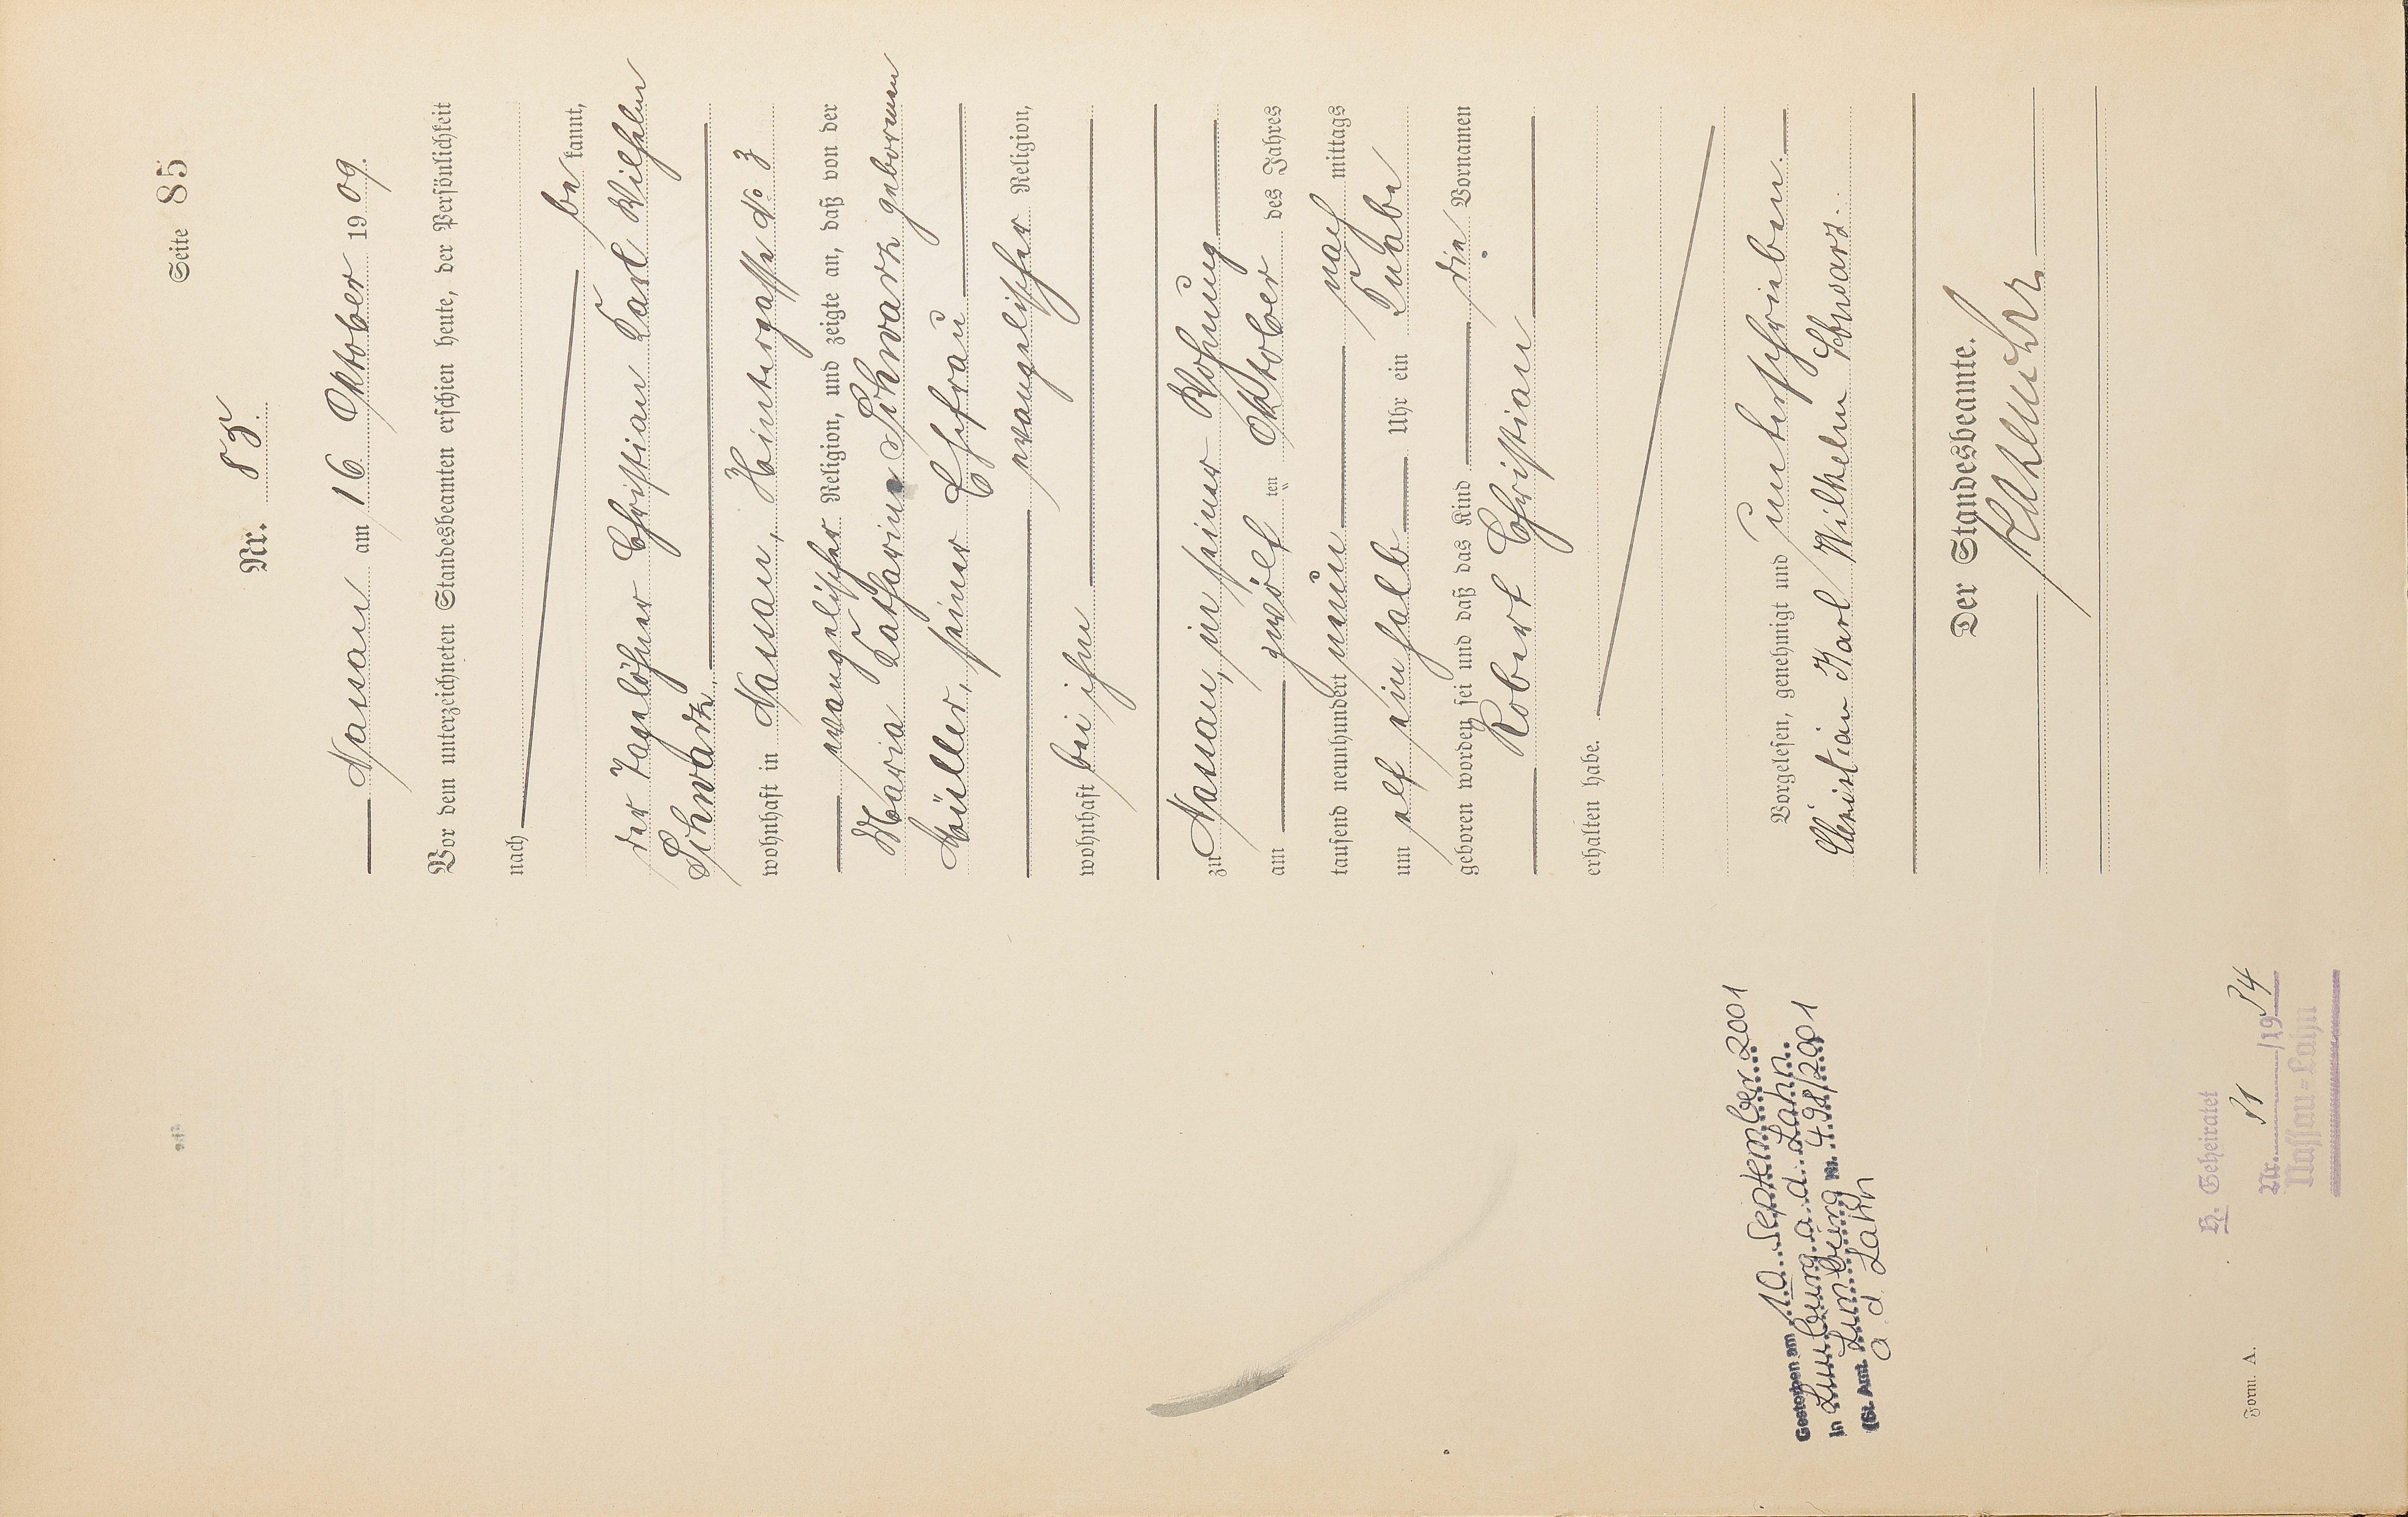 Seite 85
Nr. 85.
Nassau am 16 Oktober 1909.
Vor dem unterzeichneten Standesbeamten erschien heute, der Persönlichkeit
nach
be kannt,
der Tagelöhner Christian Karl Wilhelm
Schwarz
wohnhaft in Nassau, Hintergasse No 3
evangelischer Religion, und zeigte an, daß von der
Maria Katharine Schwarz geborenen
Müller, seiner Ehefrau
evangelischer Religion,
wohnhaft bei ihm
zu Nassau, in seiner Wohnung
am zwölf ten Oktober des Jahres
tausend neunhundert neun nach mittags
um elf einhalb Uhr ein Knabe
geboren worden sei und daß das Kind die Vornamen
Robert Christian
erhalten habe.
Vorgelesen, genehmigt und unterschrieben.
Christian Karl Wilhelm Schwarz.
Der Standesbeamte.
Gestorben am 10. September 2001
in Limburg a. d. Lahn
(St. Amt. Limburg Nr. 498/2001
a. d. Lahn
H. Geheiratet
Nr. /19 34
Nassau-Lahn
Form. A.